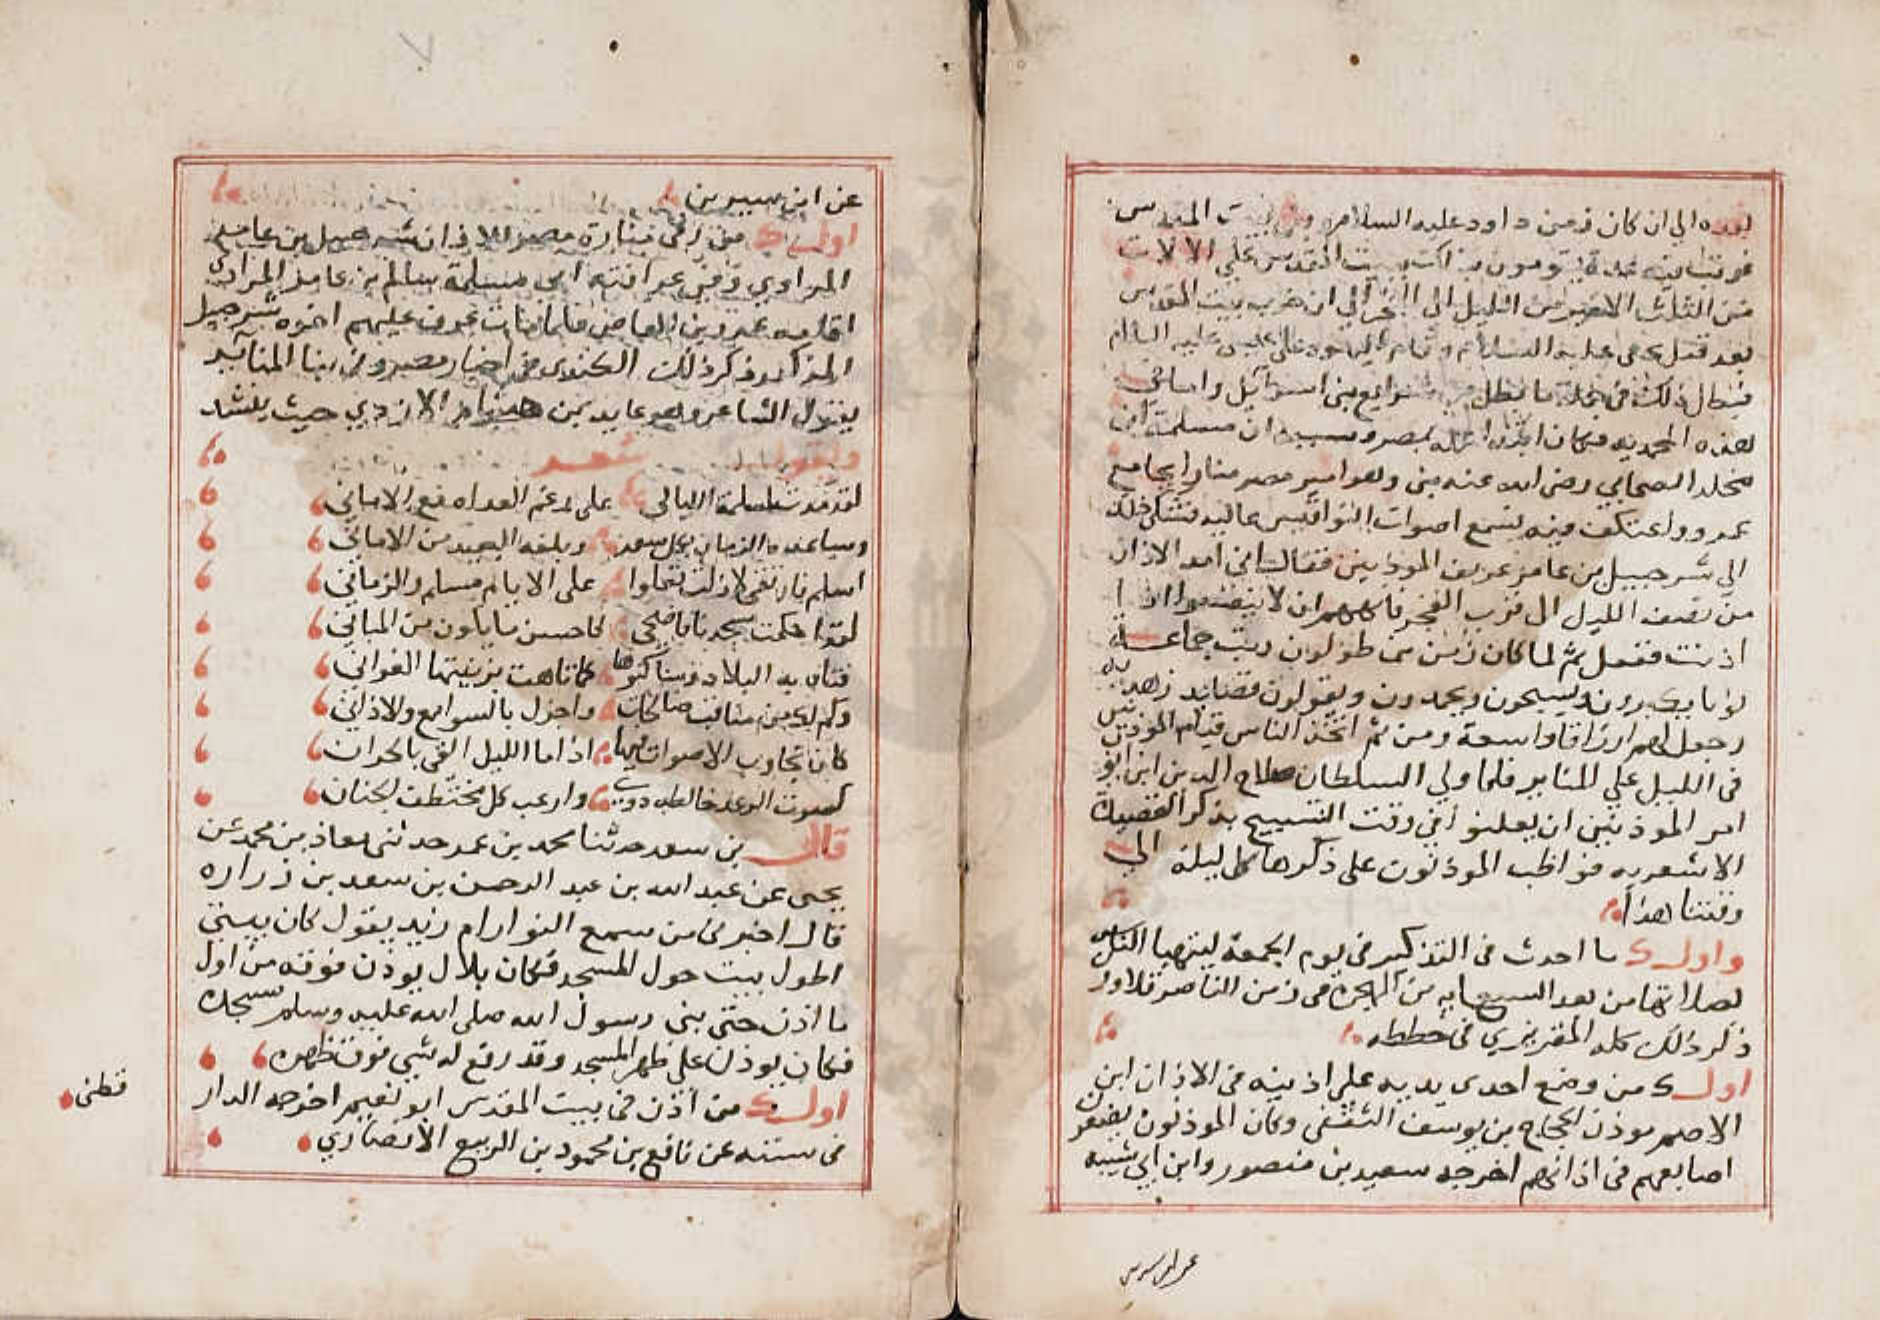 بعده الي ان كان زمن داود عليه السلام وبني بيت المقدس
فرتب فيه عدة يقومون بذلك ببيت المقدس علي الالات
من الثلث الاخير من الليل الى الفجر الي ان خرب بيت المقدس
بعد قتل يحيى عليه السلام وقيام اليهود على عيسى عليه السلام
فبطل ذلك في جملة ما بطل من شرايع بني اسرائيل واما في
هذه المحمديه فكان ابتداء بمصر وسببه ان مسلمة ابن
مخلد الصحابي رضي الله عنه بني وهو امير مصر منارا بجامع
عمرو واعتكف فيه فسمع اصوات النواقيس عاليه فشكى ذلك
الي شرحبيل بن عامر عريف الموذنين فقال انى امد الاذان
من نصف الليل الى قرب الفجر فانههم ان لا ينقسوا اذا
اذنت ففعل ثم لما كان زمن بن طولون رتب جماعة
نوبا يكبرون ويسبحون ويحمدون ويقولون قصايد زهديه
وجعل لهم ارزاقا واسعة ومن ثم اتخذ الناس قيام الموذنين
في الليل علي المنابر فلما ولي السلطان صلاح الدين ابن ايوب
امر الموذنين ان يعلنوا في وقت التسبيح بذكر العقيدة
الاشعريه فواظب الموذنون على ذكرها كل ليلة الي
وقتنا هذا
واول ما احدث فى التذكير فى يوم الجمعة ليتهيا الناس
لصلاتها من بعد السبعمايه من الهجرة فى زمن الناصر قلاوز
ذكر ذالك كله المقريزي فى خططه
اول من وضع احدى يديه علي اذنيه فى الاذان ابن
الاصم موذن الحجاج بن يوسف الثقفى وكان الموذنون يضعون
اصابعهم في اذانهم اخرجه سعيد بن منصور وابن ابي شيبه
عن ابن سيرين
عن ابن سيرين
اول من رقى منارة مصر للاذان شرحبيل بن عامر
المرادي وفي عرافته ابى مسلمة سالم بن عامر المرادي
اقامه عمرو بن العاص فلما مات عرف عليهم اخوه شرحبيل
المذكور ذكر ذلك الكندى فى اخبار مصر وفى بنا المناير
يقول الشاعر وهو عابد بن هشام الازدي حيث ينشد
ويقول شعر
لقد مدت لمسلمة الليالي على رغم العداه مع الاماني
وساعده الزمان بكل سعد وبلغه البعيد من الاماني
امسلم فارتقي لازلت تعلوا على الايام مسلم والزماني
لقد احكمت مسجدنا فاضحى كاحسن ما يكون من المباني
فتاه به البلاد وساكنوها كما تاهت بزينتها الغواني
وكم لك من مناقب صالحات واجزل بالسوامع والاذاني
كان تجاوب الاصوات فيها اذا ما الليل القى بالجران
كصوت الرعد خالطه دوي وارعب كل مختطف الجنان
قال بن سعد حدثنا محمد بن عمر حدثنى معاذ بن محمد عن
يحيى عن عبد الله بن عبد الرحمن بن سعد بن زراره
قال اخبرنى من سمع النوار ام زيد يقول كان بيتى
اطول بيت حول المسجد فكان بلال يوذن فوقه من اول
ما اذن حتى بنى رسول الله صلى الله عليه وسلم مسجده
فكان يوذن على ظهر المسجد وقد رفع له شي فوق ظهره
اول من اذن فى بيت المقدس ابو نعيم اخرجه الدار
فى سننه عن نافع بن محمود بن الربيع الانصاري
قطنى